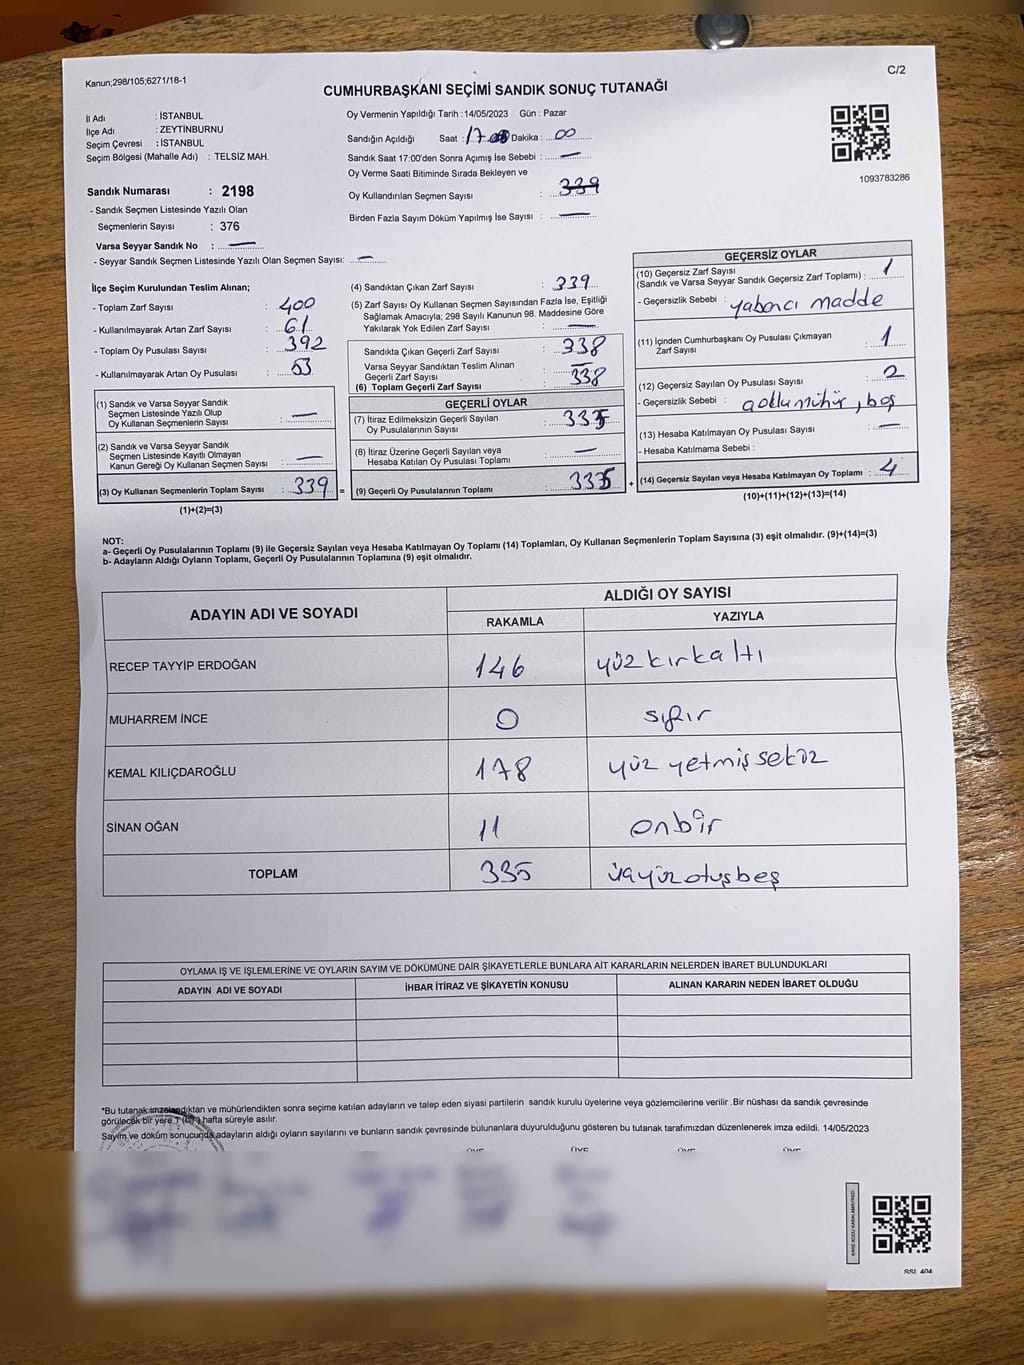 Kanun;298/105;6271/18-1
C/2
CUMHURBAŞKANI SEÇİMİ SANDIK SONUÇ TUTANAĞI
İl Adı : İSTANBUL
İlçe Adı : ZEYTİNBURNU
Seçim Çevresi : İSTANBUL
Seçim Bölgesi (Mahalle Adı) : TELSİZ MAH.
Sandık Numarası : 2198
- Sandık Seçmen Listesinde Yazılı Olan
Seçmenlerin Sayısı : 376
Varsa Seyyar Sandık No : —
- Seyyar Sandık Seçmen Listesinde Yazılı Olan Seçmen Sayısı: —
Oy Vermenin Yapıldığı Tarih :14/05/2023 Gün : Pazar
Sandığın Açıldığı Saat : 17 Dakika : 00
Sandık Saat 17:00'den Sonra Açımış İse Sebebi : —
Oy Verme Saati Bitiminde Sırada Bekleyen ve
Oy Kullandırılan Seçmen Sayısı : 339
Birden Fazla Sayım Döküm Yapılmış İse Sayısı : —
1093783286
İlçe Seçim Kurulundan Teslim Alınan;
- Toplam Zarf Sayısı : 400
- Kullanılmayarak Artan Zarf Sayısı : 61
- Toplam Oy Pusulası Sayısı : 392
- Kullanılmayarak Artan Oy Pusulası : 53
(1) Sandık ve Varsa Seyyar Sandık
Seçmen Listesinde Yazılı Olup
Oy Kullanan Seçmenlerin Sayısı : —
(2) Sandık ve Varsa Seyyar Sandık
Seçmen Listesinde Kayıtlı Olmayan
Kanun Gereği Oy Kullanan Seçmen Sayısı : —
(3) Oy Kullanan Seçmenlerin Toplam Sayısı : 339 =
(1)+(2)=(3)
(4) Sandıktan Çıkan Zarf Sayısı : 339
(5) Zarf Sayısı Oy Kullanan Seçmen Sayısından Fazla İse, Eşitliği
Sağlamak Amacıyla; 298 Sayılı Kanunun 98. Maddesine Göre
Yakılarak Yok Edilen Zarf Sayısı : —
Sandıkta Çıkan Geçerli Zarf Sayısı : 338
Varsa Seyyar Sandıktan Teslim Alınan
Geçerli Zarf Sayısı : —
(6) Toplam Geçerli Zarf Sayısı : 338
GEÇERLİ OYLAR
(7) İtiraz Edilmeksizin Geçerli Sayılan
Oy Pusulalarının Sayısı : 335
(8) İtiraz Üzerine Geçerli Sayılan veya
Hesaba Katılan Oy Pusulası Toplamı : —
(9) Geçerli Oy Pusulalarının Toplamı : 335 +
GEÇERSİZ OYLAR
(10) Geçersiz Zarf Sayısı
(Sandık ve Varsa Seyyar Sandık Geçersiz Zarf Toplamı) : 1
- Geçersizlik Sebebi : yabancı madde
(11) İçinden Cumhurbaşkanı Oy Pusulası Çıkmayan
Zarf Sayısı : 1
(12) Geçersiz Sayılan Oy Pusulası Sayısı : 2
- Geçersizlik Sebebi : çoklu mühür, boş
(13) Hesaba Katılmayan Oy Pusulası Sayısı : —
- Hesaba Katılmama Sebebi :
(14) Geçersiz Sayılan veya Hesaba Katılmayan Oy Toplamı : 4
(10)+(11)+(12)+(13)=(14)
NOT:
a- Geçerli Oy Pusulalarının Toplamı (9) ile Geçersiz Sayılan veya Hesaba Katılmayan Oy Toplamı (14) Toplamları, Oy Kullanan Seçmenlerin Toplam Sayısına (3) eşit olmalıdır. (9)+(14)=(3)
b- Adayların Aldığı Oyların Toplamı, Geçerli Oy Pusulalarının Toplamına (9) eşit olmalıdır.
ADAYIN ADI VE SOYADI
ALDIĞI OY SAYISI
RAKAMLA YAZIYLA
RECEP TAYYİP ERDOĞAN 146 yüzkırkaltı
MUHARREM İNCE 0 sıfır
KEMAL KILIÇDAROĞLU 178 yüz yetmiş sekiz
SİNAN OĞAN 11 onbir
TOPLAM 335 üçyüzotuzbeş
OYLAMA İŞ VE İŞLEMLERİNE VE OYLARIN SAYIM VE DÖKÜMÜNE DAİR ŞİKAYETLERLE BUNLARA AİT KARARLARIN NELERDEN İBARET BULUNDUKLARI
ADAYIN ADI VE SOYADI İHBAR İTİRAZ VE ŞİKAYETİN KONUSU ALINAN KARARIN NEDEN İBARET OLDUĞU
*Bu tutanak imzalandıktan ve mühürlendikten sonra seçime katılan adayların ve talep eden siyasi partilerin sandık kurulu üyelerine veya gözlemcilerine verilir .Bir nüshası da sandık çevresinde
görülecek bir yere 1 (bir) hafta süreyle asılır.
Sayım ve döküm sonucunda adayların aldığı oyların sayılarını ve bunların sandık çevresinde bulunanlara duyurulduğunu gösteren bu tutanak tarafımızdan düzenlenerek imza edildi. 14/05/2023
ÜYE ÜYE ÜYE ÜYE